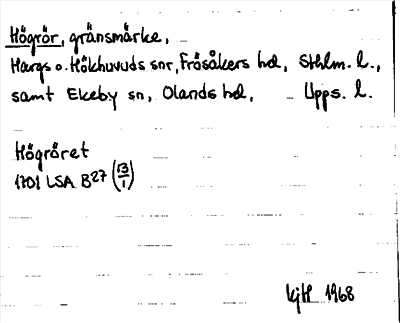 Högrör, gränsmärke,
Hargs o. Hökhuvuds snr, Frösåkers hd, Sthlm. l.,
samt Ekeby sn, Olands hd, Upps. l.
Högröret
1701 LSA B27 (13/1)
1968